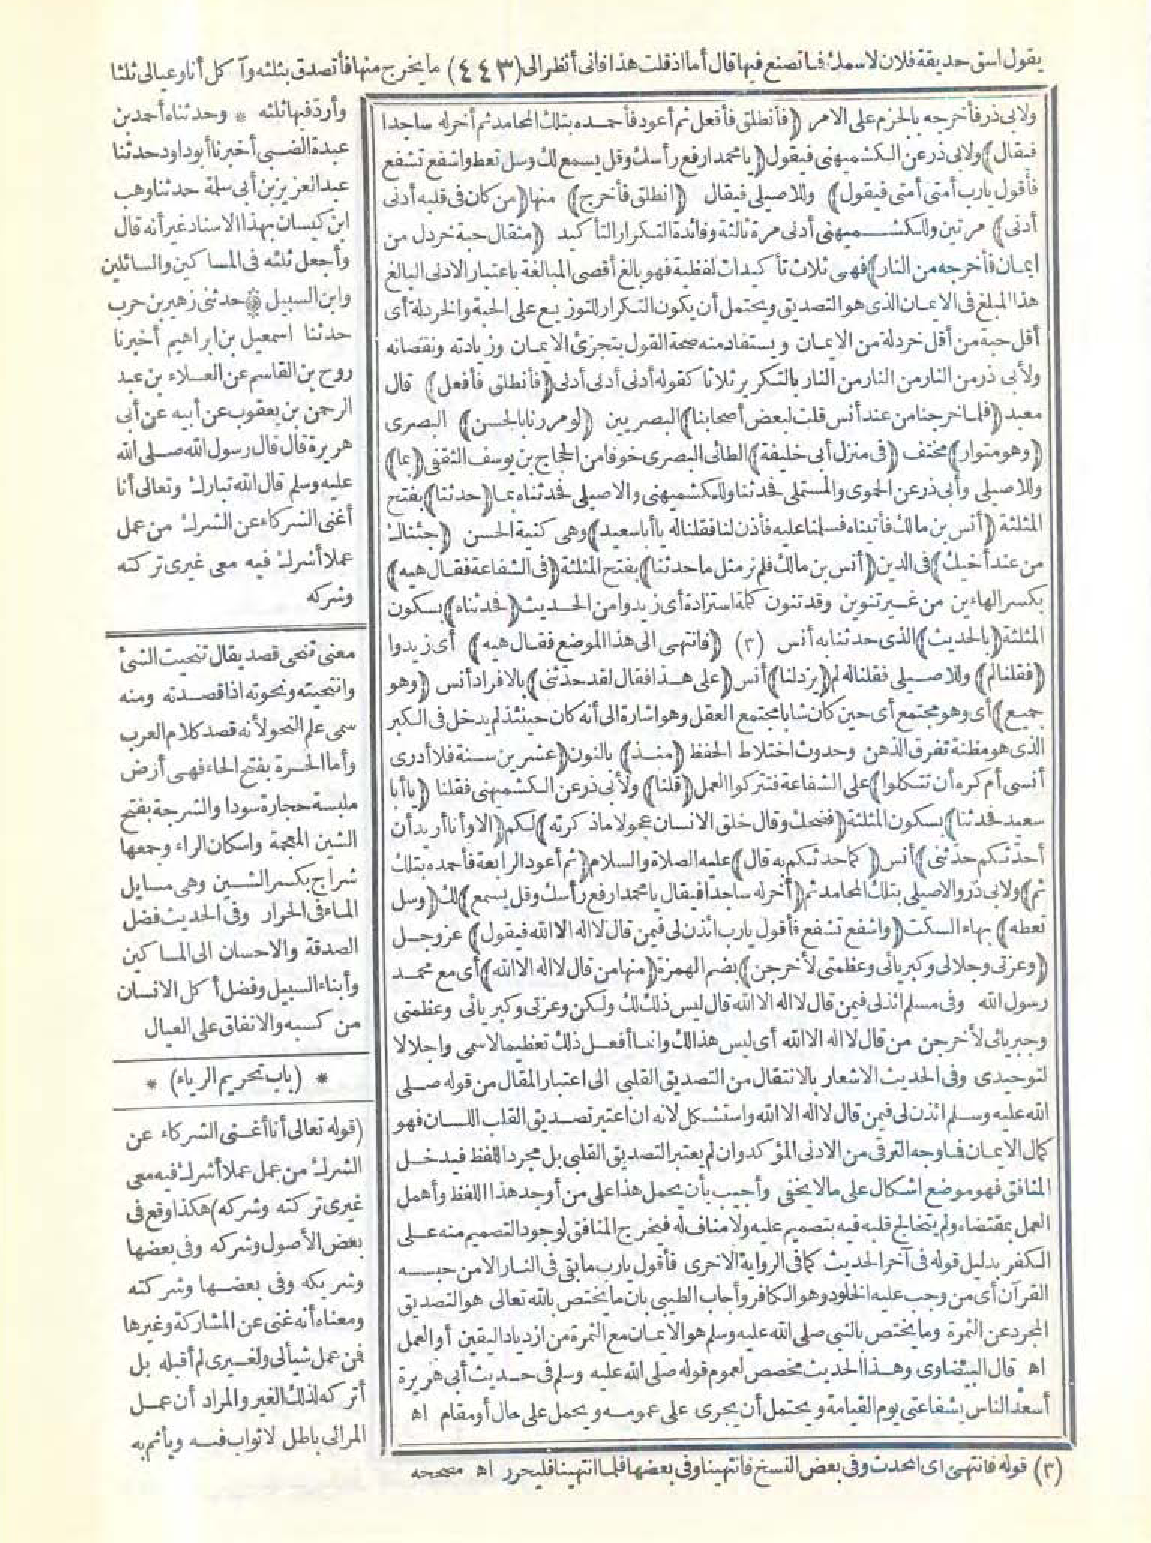 يقول اسق حديقة فلان لاسمك فما تصنع فيها قال أما اذ قلت هذا فانى أنظر الى (٤٤٣) ما يخرج منها فأتصدق بثلثه وآكل أنا وعيالى ثلثا
ولابى ذر فأخرجه بالجزم على الامر ﴿فأنطلق فأفعل ثم أعود فأحمده بتلك المحامد ثم أخرله ساجدا
فيقال﴾ ولابى ذر عن الكشميهنى فيقول ﴿يا محمد ارفع رأسك وقل يسمع لك وسل تعط واشفع تشفع
فأقول يارب أمتى أمتى فيقول﴾ وللاصيلى فيقال ﴿انطلق فأخرج﴾ منها ﴿من كان فى قلبه أدنى
أدنى﴾ مرتين وللكشميهنى أدنى مرة ثالثة وفائدة التكرار التأكيد ﴿مثقال حبة خردل من
ايمان فأخرجه من النار﴾ فهى ثلاث تأكيدات لفظية فهو بالغ أقصى المبالغة باعتبار الادنى البالغ
هذا المبلغ فى الايمان الذى هو التصديق ويحتمل أن يكون التكرار للتوزيع على الحبة والخردلة أى
أقل حبة من أقل خردلة من الايمان ويستفاد منه صحة القول بتجزئ الايمان وزيادته ونقصانه
ولأبى ذر من النار من النار من النار بالتكرير ثلاثا كقوله أدنى أدنى أدنى ﴿فأنطلق فأفعل﴾ قال
معبد ﴿فلما خرجنا من عند أنس قلت لبعض أصحابنا﴾ البصريين ﴿لو مررنا بالحسن﴾ البصرى
﴿وهو متوار﴾ مختف ﴿فى منزل أبى خليفة﴾ الطائى البصرى خوفا من الحجاج بن يوسف الثقفى ﴿بما﴾
وللاصيلى وأبى ذر عن الحموى والمستملى فحدثنا وللكشميهنى والاصيلى فحدثناه بما ﴿حدثنا﴾ بفتح
المثلثة ﴿أنس بن مالك فأتيناه فسلمنا عليه فأذن لنا فقلنا له يا أبا سعيد﴾ وهى كنية الحسن ﴿جئناك
من عند أخيك﴾ فى الدين ﴿أنس بن مالك فلم نر مثل ما حدثنا﴾ بفتح المثلثة ﴿فى الشفاعة فقال هيه﴾
بكسر الهاءين من غير تنوين وقد تنون كلمة استزادة أى زيدوا من الحديث ﴿فحدثناه﴾ بسكون
المثلثة ﴿بالحديث﴾ الذى حدثنا به أنس (٣) ﴿فانتهى الى هذا الموضع فقال هيه﴾ أى زيدوا
﴿فقلنا لم﴾ وللاصيلى فقلنا له لم ﴿يزد لنا﴾ أنس ﴿على هذا فقال لقد حدثنى﴾ بالافراد أنس ﴿وهو
جميع﴾ أى وهو مجتمع أى حين كان شابا مجتمع العقل وهو اشارة الى أنه كان حينئذ لم يدخل فى الكبر
الذى هو مظنة تفرق الذهن وحدوث اختلاط الحفظ ﴿منذ﴾ بالنون ﴿عشرين سنة فلا أدرى
أنسى أم كره أن تتكلوا﴾ على الشفاعة فتتركوا العمل ﴿قلنا﴾ ولأبى ذر عن الكشميهنى فقلنا ﴿يا أبا
سعيد فحدثنا﴾ بسكون المثلثة ﴿فضحك وقال خلق الانسان عجولا ماذ كرته﴾ لكم ﴿الا وأنا أريد أن
أحدثكم حدثنى﴾ أنس ﴿كما حدثكم به قال﴾ عليه الصلاة والسلام ﴿ثم أعود الرابعة فأحمده بتلك
ثم﴾ ولابى ذر والاصيلى بتلك المحامد ثم ﴿أخرله ساجدا فيقال يا محمد ارفع رأسك وقل يسمع﴾ لك ﴿وسل
تعطه﴾ بهاء السكت ﴿واشفع تشفع فأقول يارب ائذن لى فيمن قال لا اله الا الله فيقول﴾ عز وجل
﴿وعزتى وجلالى وكبريائى وعظمتى لأخرجن﴾ بضم الهمزة ﴿منها من قال لا اله الا الله﴾ أى مع محمد
رسول الله وفى مسلم ائذن لى فيمن قال لا اله الا الله قال ليس ذلك لك ولكن وعزتى وكبريائى وعظمتى
وجبريائى لأخرجن من قال لا اله الا الله أى ليس هذا لك وانما أفعل ذلك تعظيما لاسمى واجلالا
لتوحيدى وفى الحديث الاشعار بالانتقال من التصديق القلبى الى اعتبار المقال من قوله صلى
الله عليه وسلم ائذن لى فيمن قال لا اله الا الله واستشكل لانه ان اعتبر تصديق القلب اللسان فهو
كمال الايمان فما وجه الترقى من الادنى المؤكد وان لم يعتبر التصديق القلبى بل مجرد اللفظ فيدخل
المنافق فهو موضع اشكال على ما لا يخفى وأجيب بأن يحمل هذا على من أوجد هذا اللفظ وأهمل
العمل بمقتضاه ولم يتخالج قلبه فيه بتصميم عليه ولا مناف له فيخرج المنافق لوجود التصميم منه على
الكفر بدليل قوله فى آخر الحديث كما فى الرواية الاخرى فأقول يارب ما بقى فى النار الا من حبسه
القرآن أى من وجب عليه الخلود وهو الكافر وأجاب الطيبى بان ما يختص بالله تعالى هو التصديق
المجرد عن الثمرة وما يختص بالنبى صلى الله عليه وسلم هو الايمان مع الثمرة من ازدياد اليقين أو العمل
اه قال البيضاوى وهذا الحديث مخصص لعموم قوله صلى الله عليه وسلم فى حديث أبى هريرة
أسعد الناس بشفاعتى يوم القيامة ويحتمل أن يجرى على عمومه ويحمل على حال أو مقام اه
(٣) قوله فانتهى اى المحدث وفى بعض النسخ فانتهينا وفى بعضها فلما انتهينا فليحرر اه مصححه
وأرد فيها ثلثه * وحدثناه أحمد بن
عبدة الضبى أخبرنا أبو داود حدثنا
عبد العزيز بن أبى سلمة حدثنا وهب
ابن كيسان بهذا الاسناد غير أنه قال
وأجعل ثلثه فى المساكين والسائلين
وابن السبيل * حدثنى زهير بن حرب
حدثنا اسمعيل بن ابراهيم أخبرنا
روح بن القاسم عن العلاء بن عبد
الرحمن بن يعقوب عن أبيه عن أبى
هريرة قال قال رسول الله صلى الله
عليه وسلم قال الله تبارك وتعالى أنا
أغنى الشركاء عن الشرك من عمل
عملا أشرك فيه معى غيرى تركته
وشركه
معنى تنحى قصد يقال تنحيت الشئ
وانتحيته ونحوته اذا قصدته ومنه
سمى علم النحو لأنه قصد كلام العرب
وأما الحرة بفتح الحاء فهى أرض
ملبسة حجارة سودا والشرجة بفتح
الشين المعجمة واسكان الراء وجمعها
شراج بكسر الشين وهى مسايل
الماء فى الحرار وفى الحديث فضل
الصدقة والاحسان الى المساكين
وأبناء السبيل وفضل أكل الانسان
من كسبه والانفاق على العيال
* (باب تحريم الرياء) *
(قوله تعالى أنا أغنى الشركاء عن
الشرك من عمل عملا أشرك فيه معى
غيرى تركته وشركه) هكذا وقع فى
بعض الأصول وشركه وفى بعضها
وشريكه وفى بعضها وشركته
ومعناه أنه غنى عن المشاركة وغيرها
فمن عمل شيأ لى ولغيرى لم أقبله بل
أتركه لذلك الغير والمراد أن عمل
المرائى باطل لا ثواب فيه ويأثم به